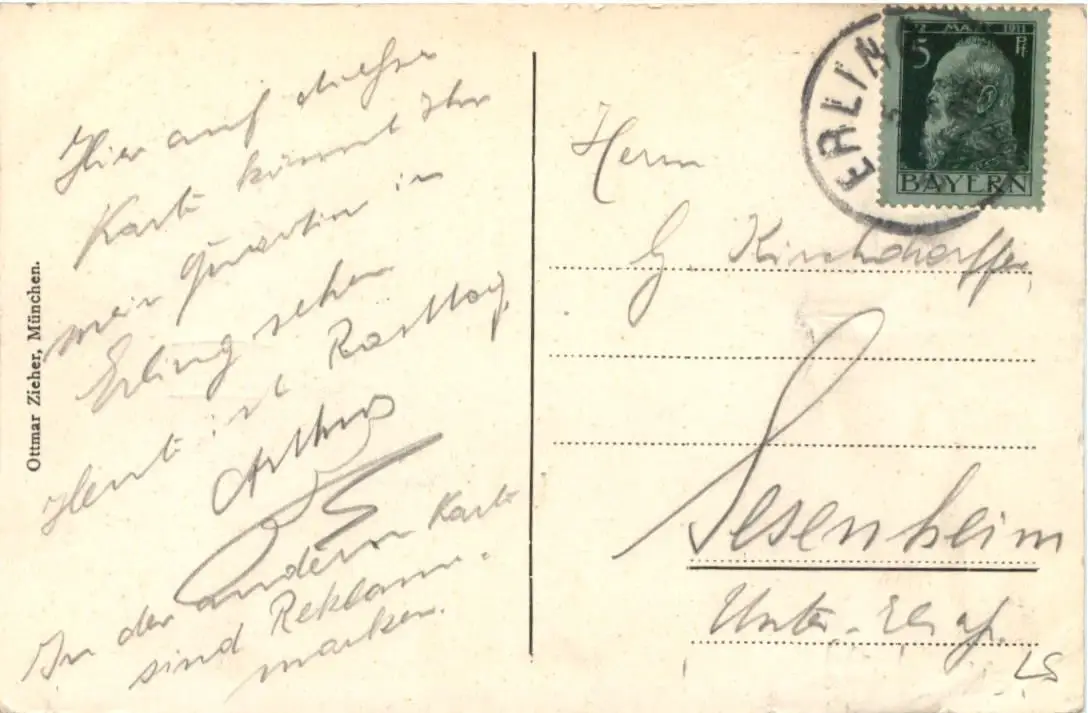 Hier auf dieser
Karte kömmt Ihr
mein Quartier in
Erling sehen
Heute ist Rasttag.
Arthur
In der andern Karte
sind Reklame-
marken.
Ottmar Zieher, München.
ERLING
1911
5 Pf
BAYERN
Herrn
G. Kirchdorffer,
Sesenheim
Unter-Elsaß.
LS